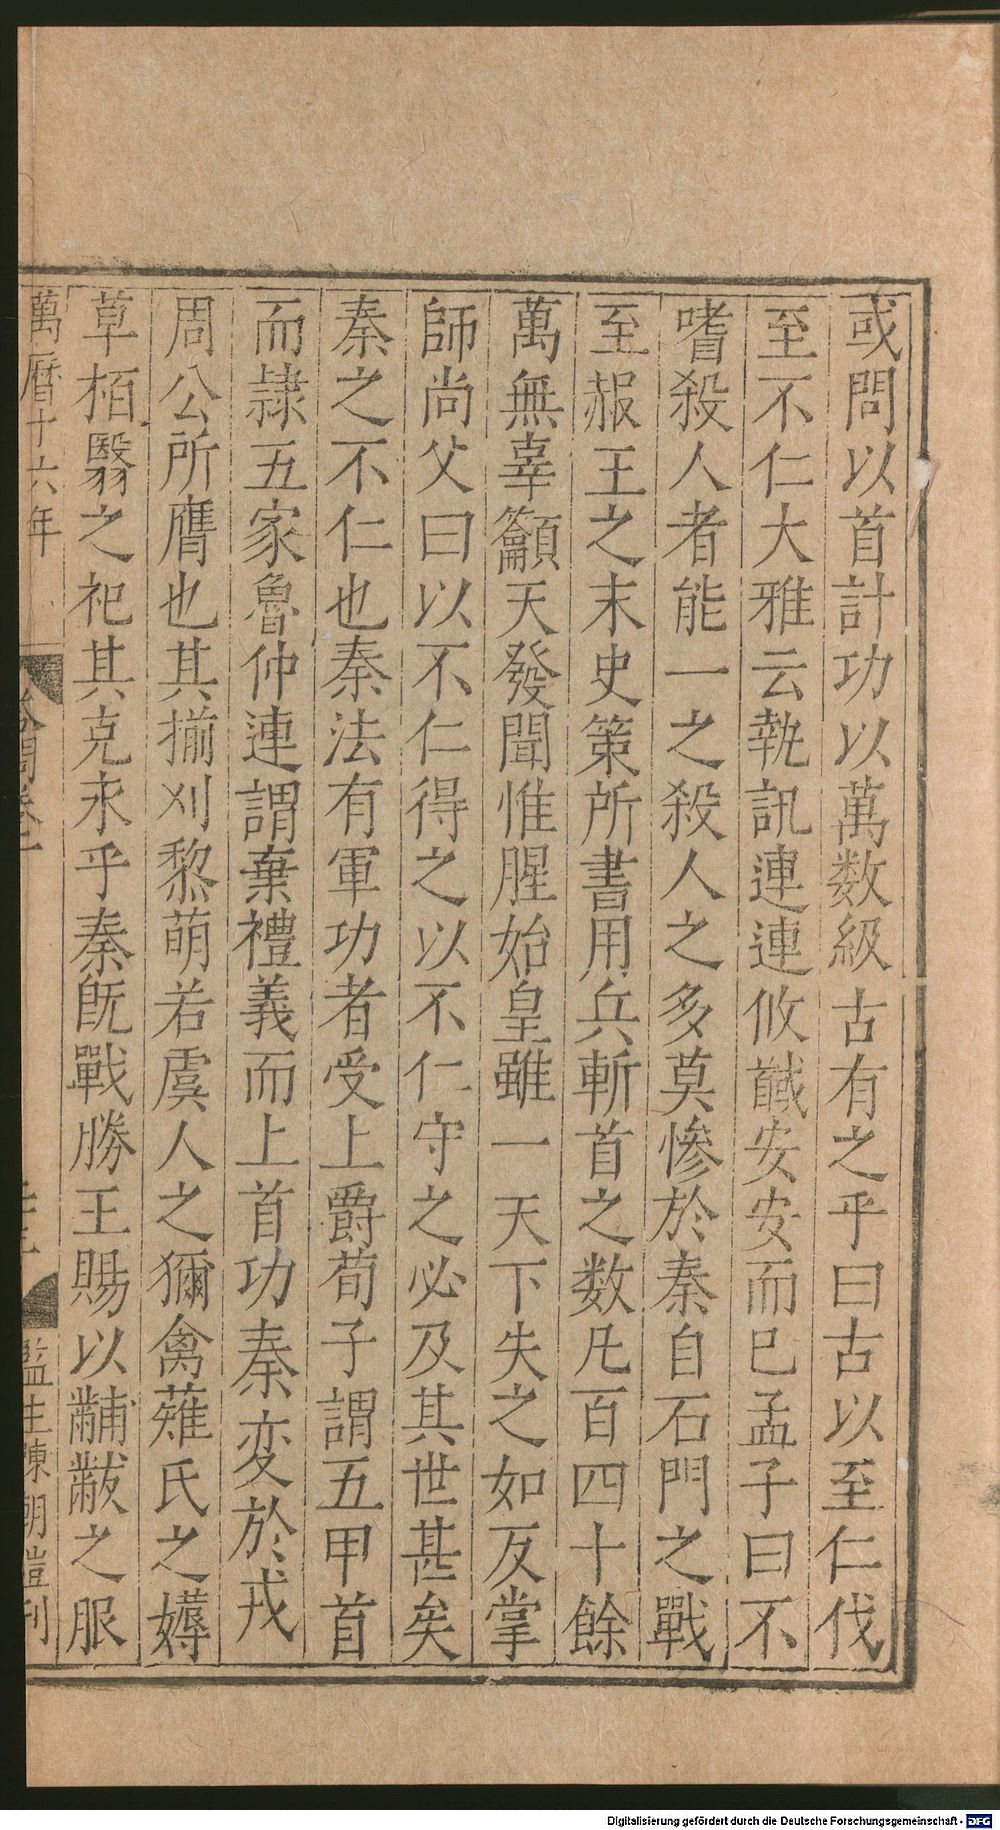 或問以首計功以萬数級古有之乎曰古以至仁伐
至不仁大雅云執訊連連攸馘安安而已孟子曰不
嗜殺人者能一之殺人之多莫慘於秦自石門之戰
至赧王之末史策所書用兵斬首之数凡百四十餘
萬無辜籲天發聞惟腥始皇雖一天下失之如反掌
師尚父曰以不仁得之以不仁守之必及其世甚矣
秦之不仁也秦法有軍功者受上爵荀子謂五甲首
而隷五家魯仲連謂棄禮義而上首功秦变於戎
周公所膺也其揃刈黎萌若虞人之獮禽薙氏之媷
草栢翳之祀其克永乎秦旣戰勝王賜以黼黻之服
萬曆十六年
監生陳朋愷刊
Digitalisierung gefördert durch die Deutsche Forschungsgemeinschaft - DFG